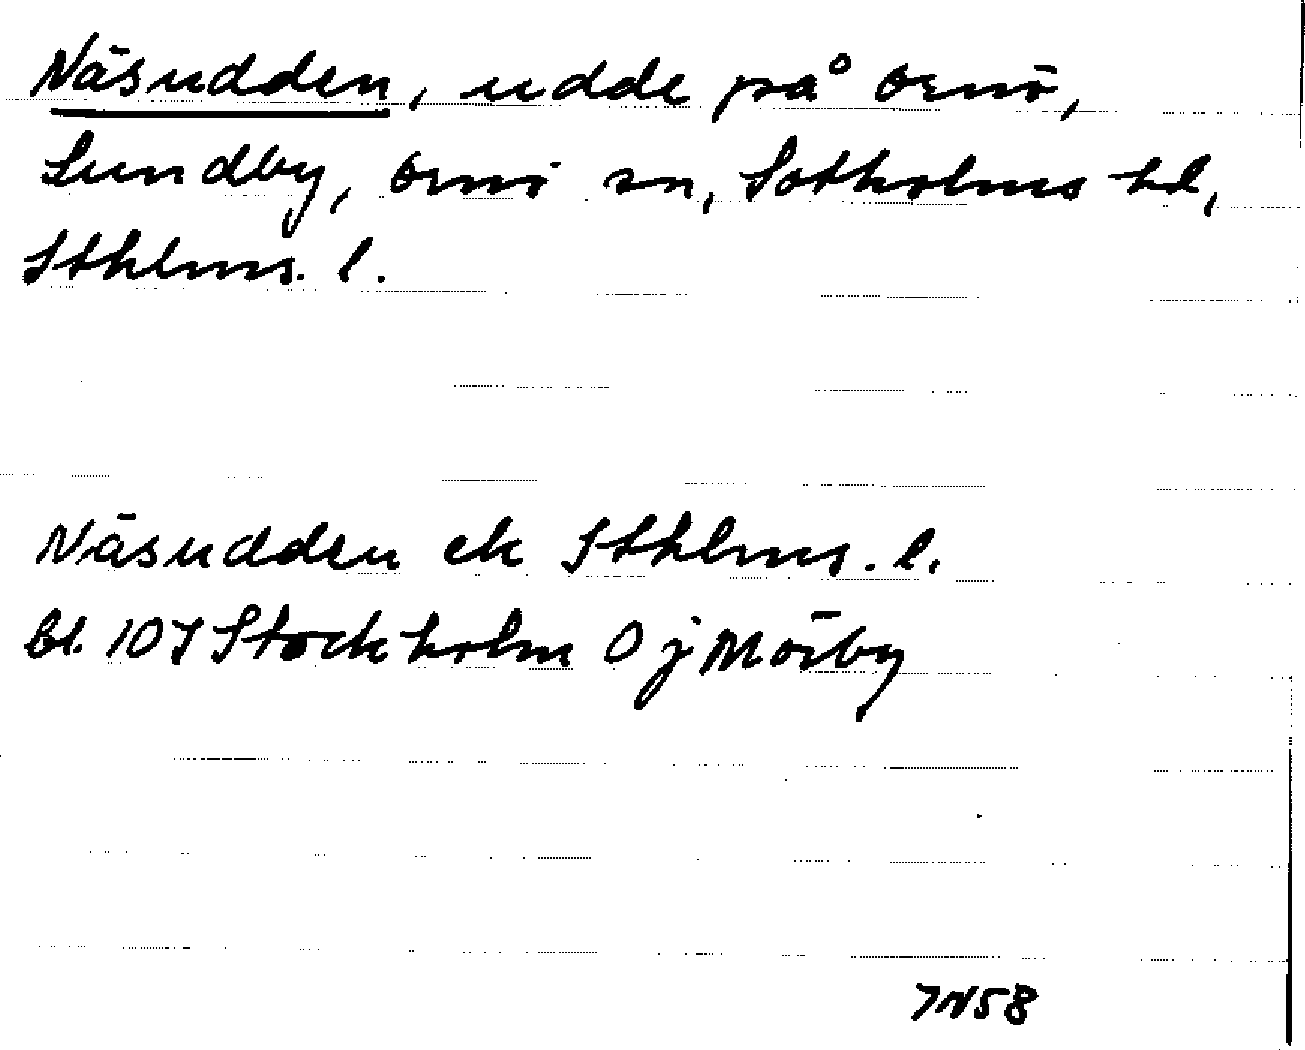 Näsudden, udde på Ornö,
Lundby, Ornö sn, Sotholms hd,
Sthlms. l.
Näsudden ek Sthlms. l.
bl. 10I Stockholm O j Mörby
7N58